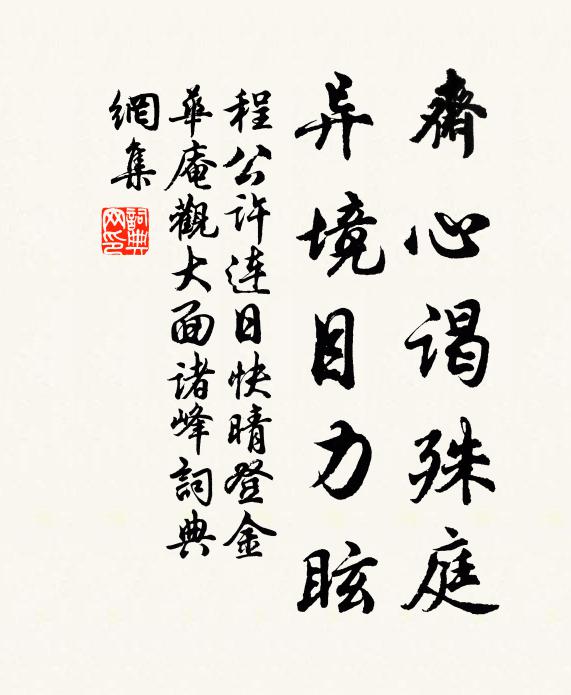 齋心謁殊庭
异境目力眩
程公許連日快晴登金
華庵觀大面諸峰詞典
網集
詞典
网印